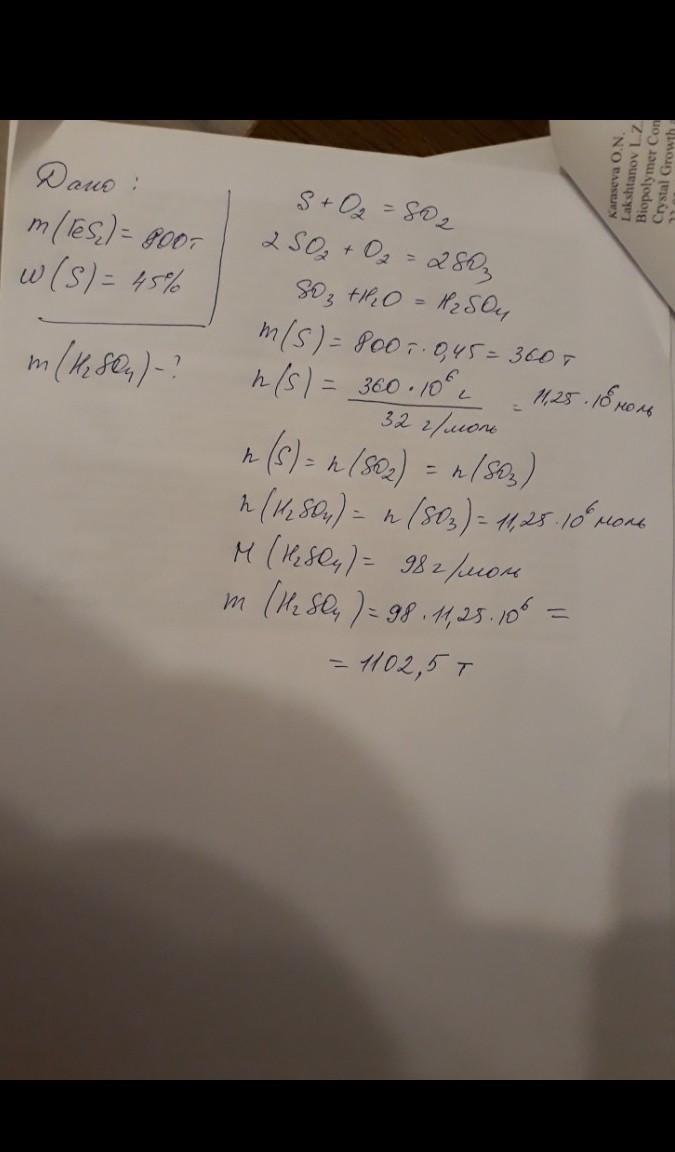 Дано:
m(FeS₂) = 800т
w(S) = 45%
m(H₂SO₄) - ?
S + O₂ = SO₂
2SO₂ + O₂ = 2SO₃
SO₃ + H₂O = H₂SO₄
m(S) = 800т · 0,45 = 360т
n(S) = 360 · 10⁶ г / 32 г/моль = 11,25 · 10⁶ моль
n(S) = n(SO₂) = n(SO₃)
n(H₂SO₄) = n(SO₃) = 11,25 · 10⁶ моль
M(H₂SO₄) = 98 г/моль
m(H₂SO₄) = 98 · 11,25 · 10⁶ =
= 1102,5 т
Karaseva O.N.
Lakshtanov L.Z.
Biopolymer Con
Crystal Growth